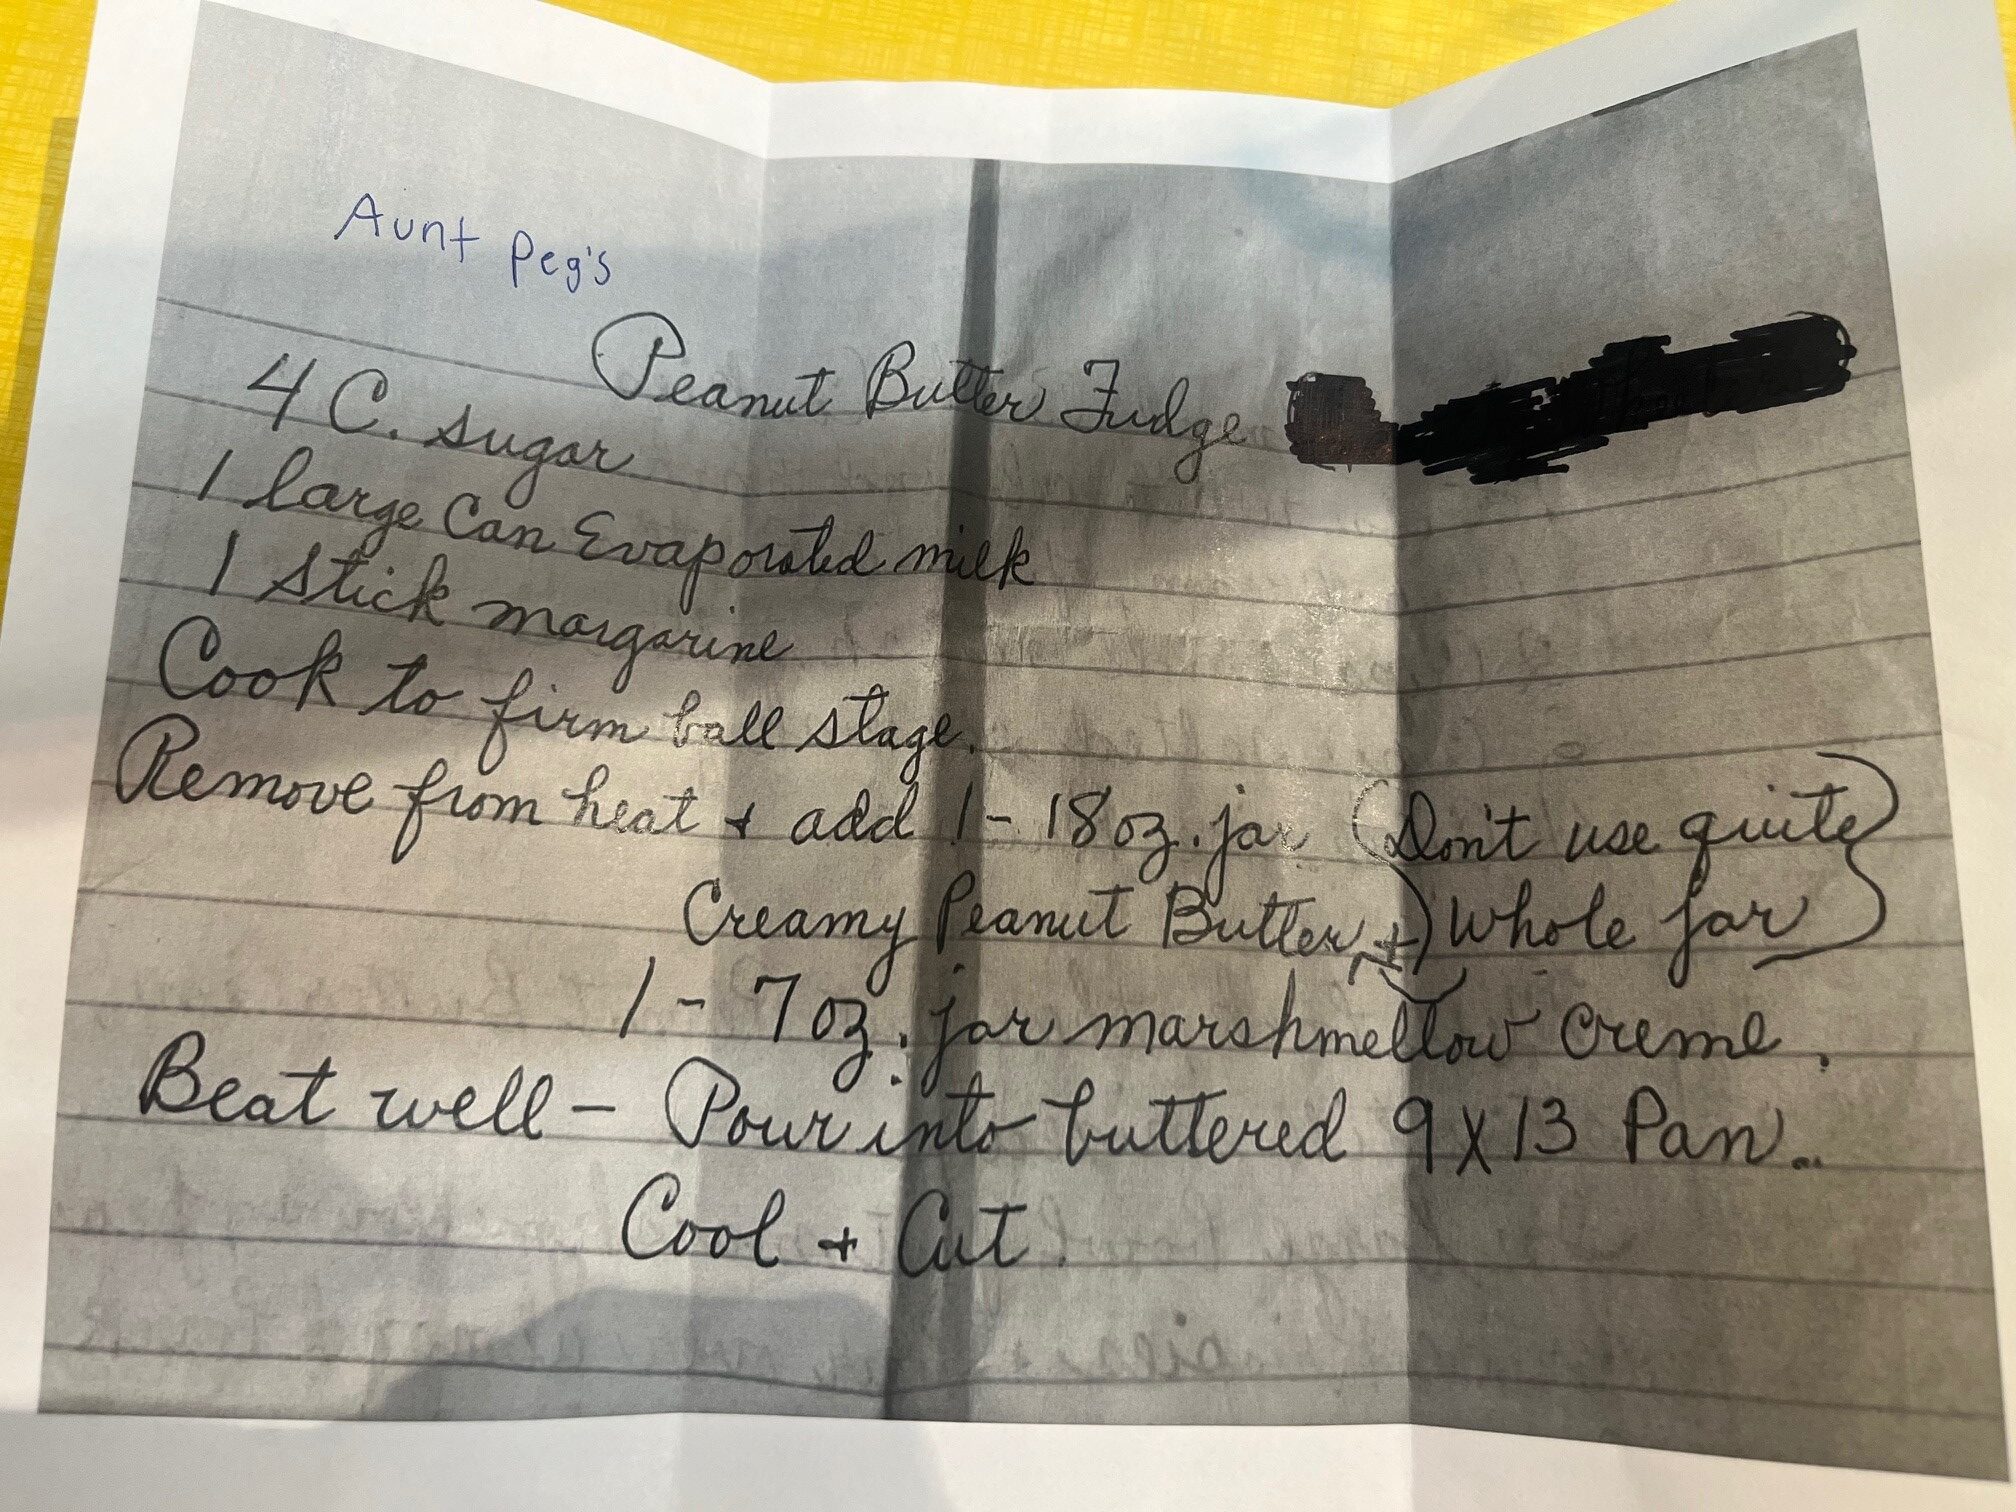 Aunt Peg's
Peanut Butter Fudge
4 C. sugar
1 large Can Evaporated milk
1 stick margarine
Cook to firm ball stage.
Remove from heat + add 1 - 18 oz. jar (Don't use quite
Creamy Peanut Butter, + Whole Jar)
1 - 7 oz. jar marshmellow creme.
Beat well - Pour into buttered 9 X 13 Pan..
Cool + Cut.